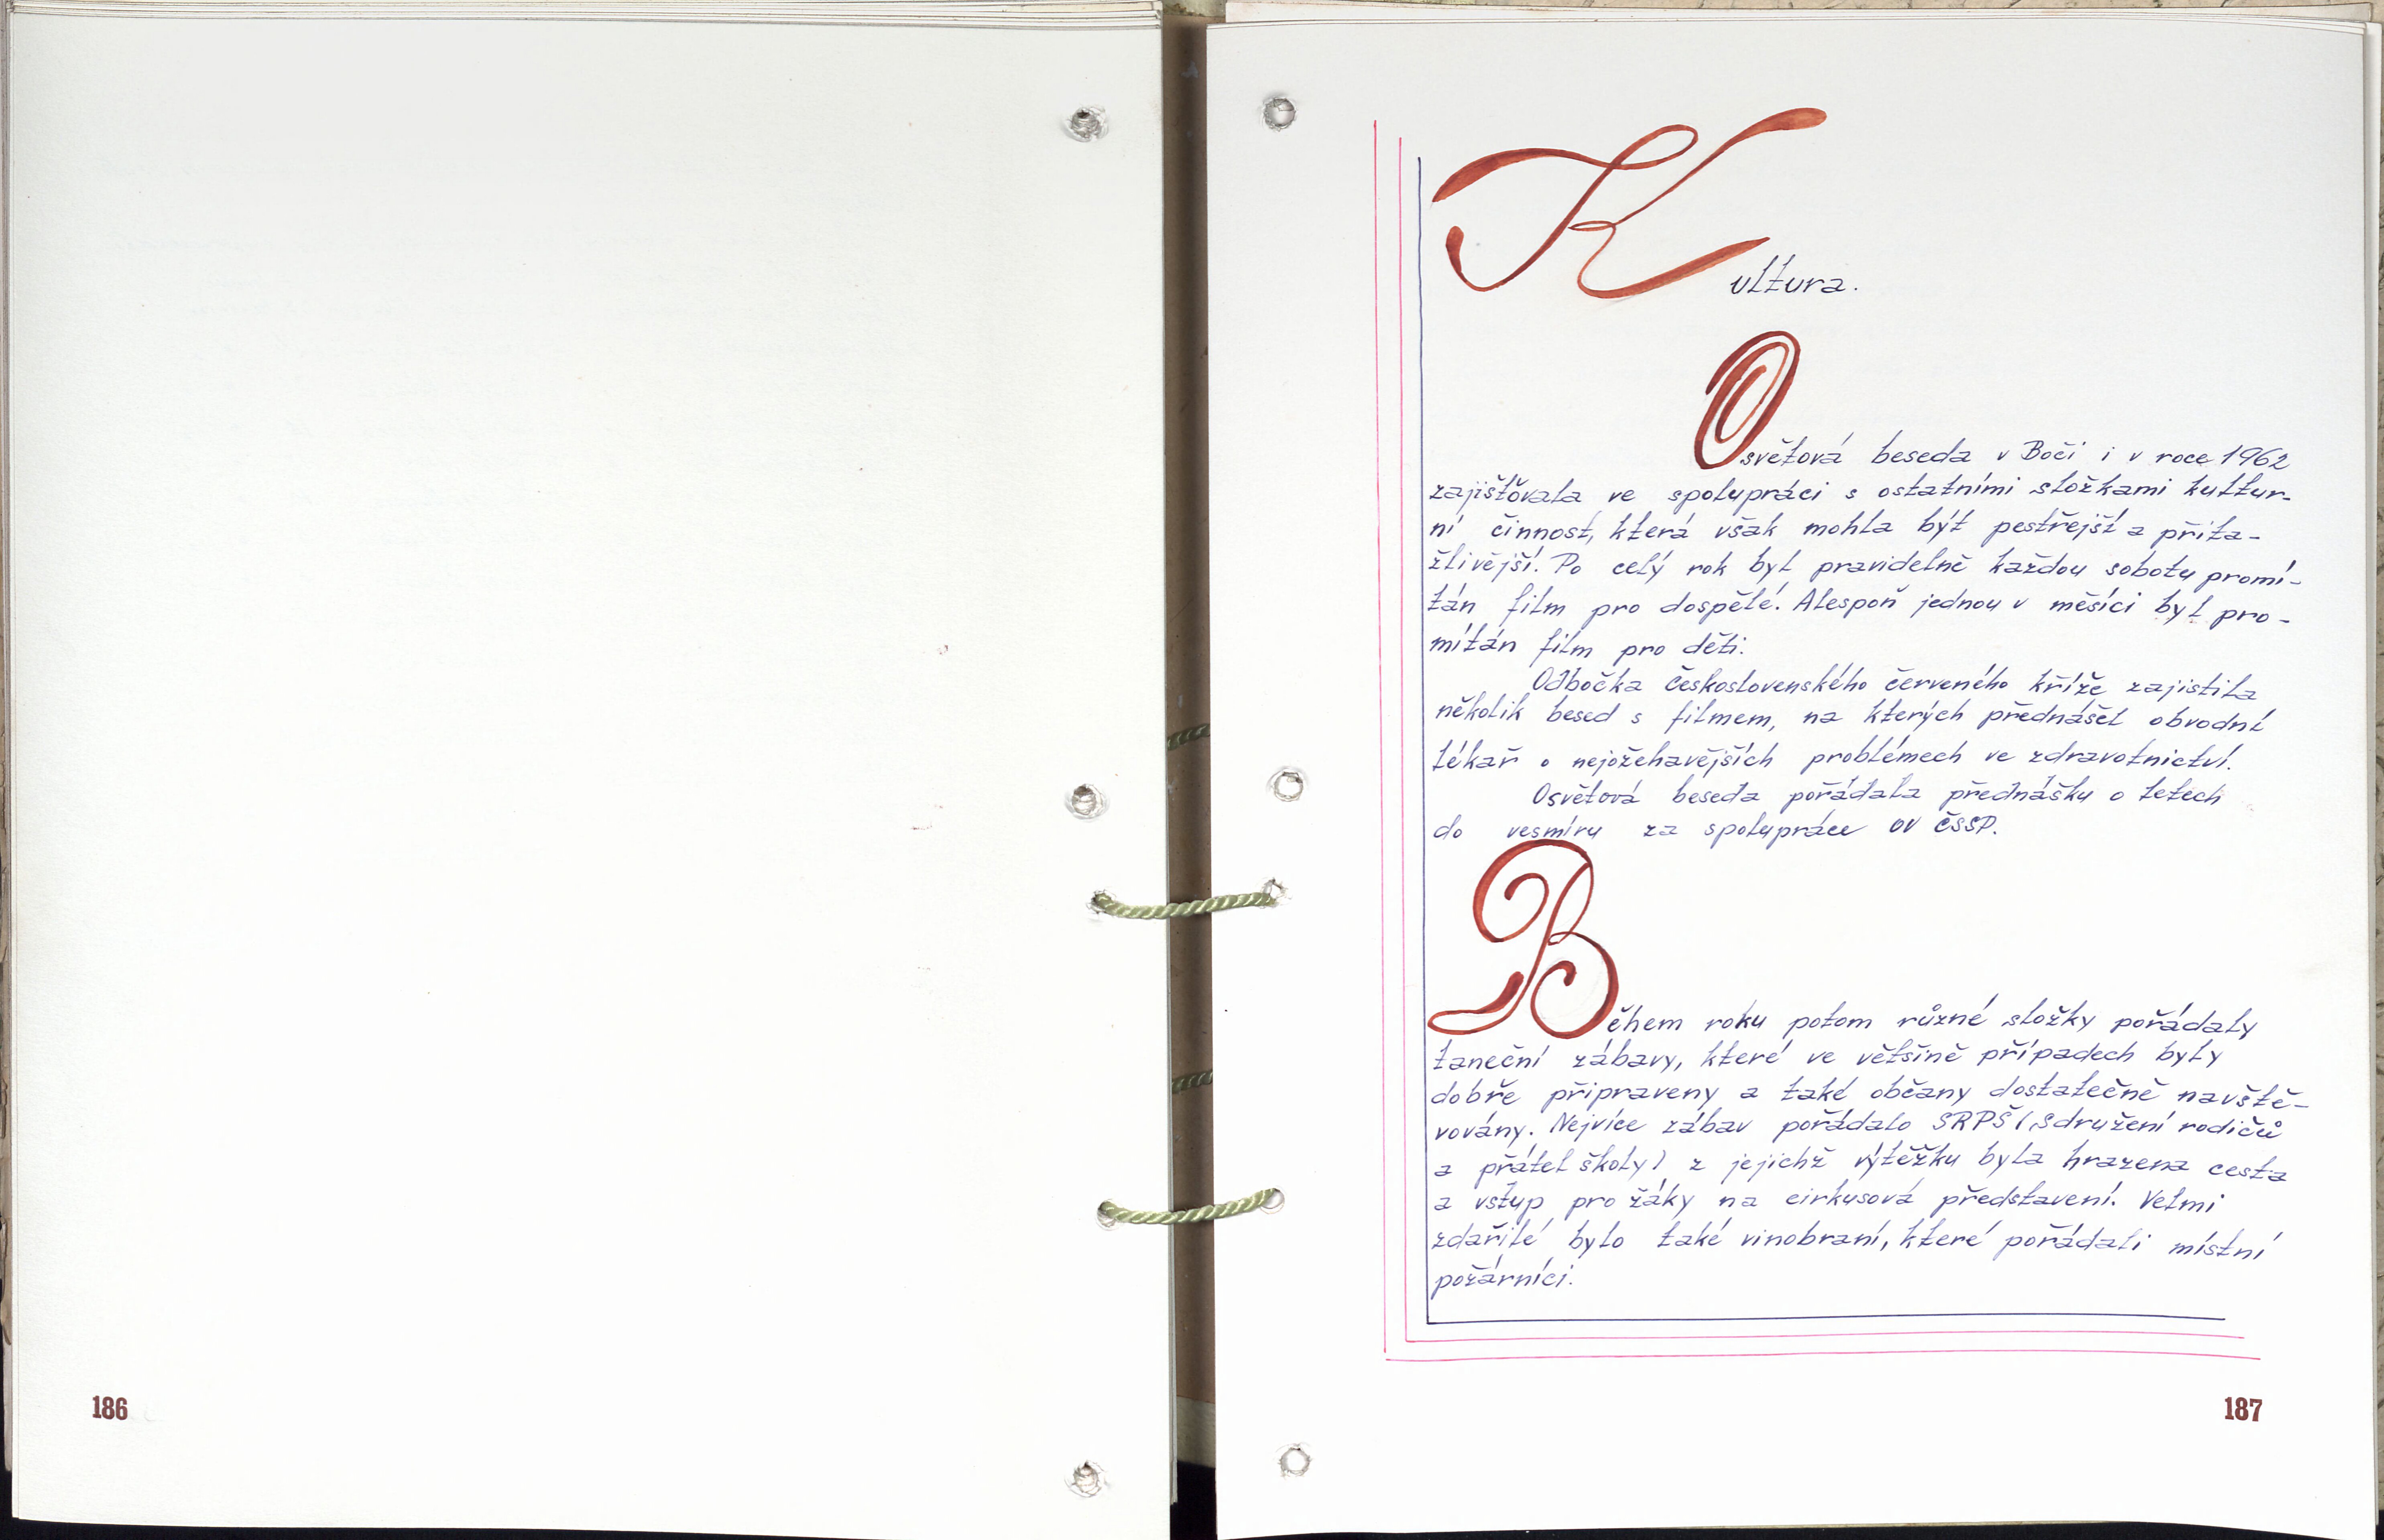 Kultura.
Osvětová beseda v Boči i v roce 1962
zajišťovala ve spolupráci s ostatními složkami kultur-
ní činnost, která však mohla být pestřejší a přita-
žlivější. Po celý rok byl pravidelně každou sobotu promí-
tán film pro dospělé. Alespoň jednou v měsíci byl pro-
mítán film pro děti.
Odbočka československého červeného kříže zajistila
několik besed s filmem, na kterých přednášel obvodní
lékař o nejožehavějších problémech ve zdravotnictví.
Osvětová beseda pořádala přednášku o letech
do vesmíru za spolupráce OV ČSSP.
Během roku potom různé složky pořádaly
taneční zábavy, které ve většině případech byly
dobře připraveny a také občany dostatečně navště-
vovány. Nejvíce zábav pořádalo SRPŠ (Sdružení rodičů
a přátel školy) z jejichž výtěžku byla hrazena cesta
a vstup pro žáky na cirkusová představení. Velmi
zdařilé bylo také vinobraní, které pořádali místní
požárníci.
186
187